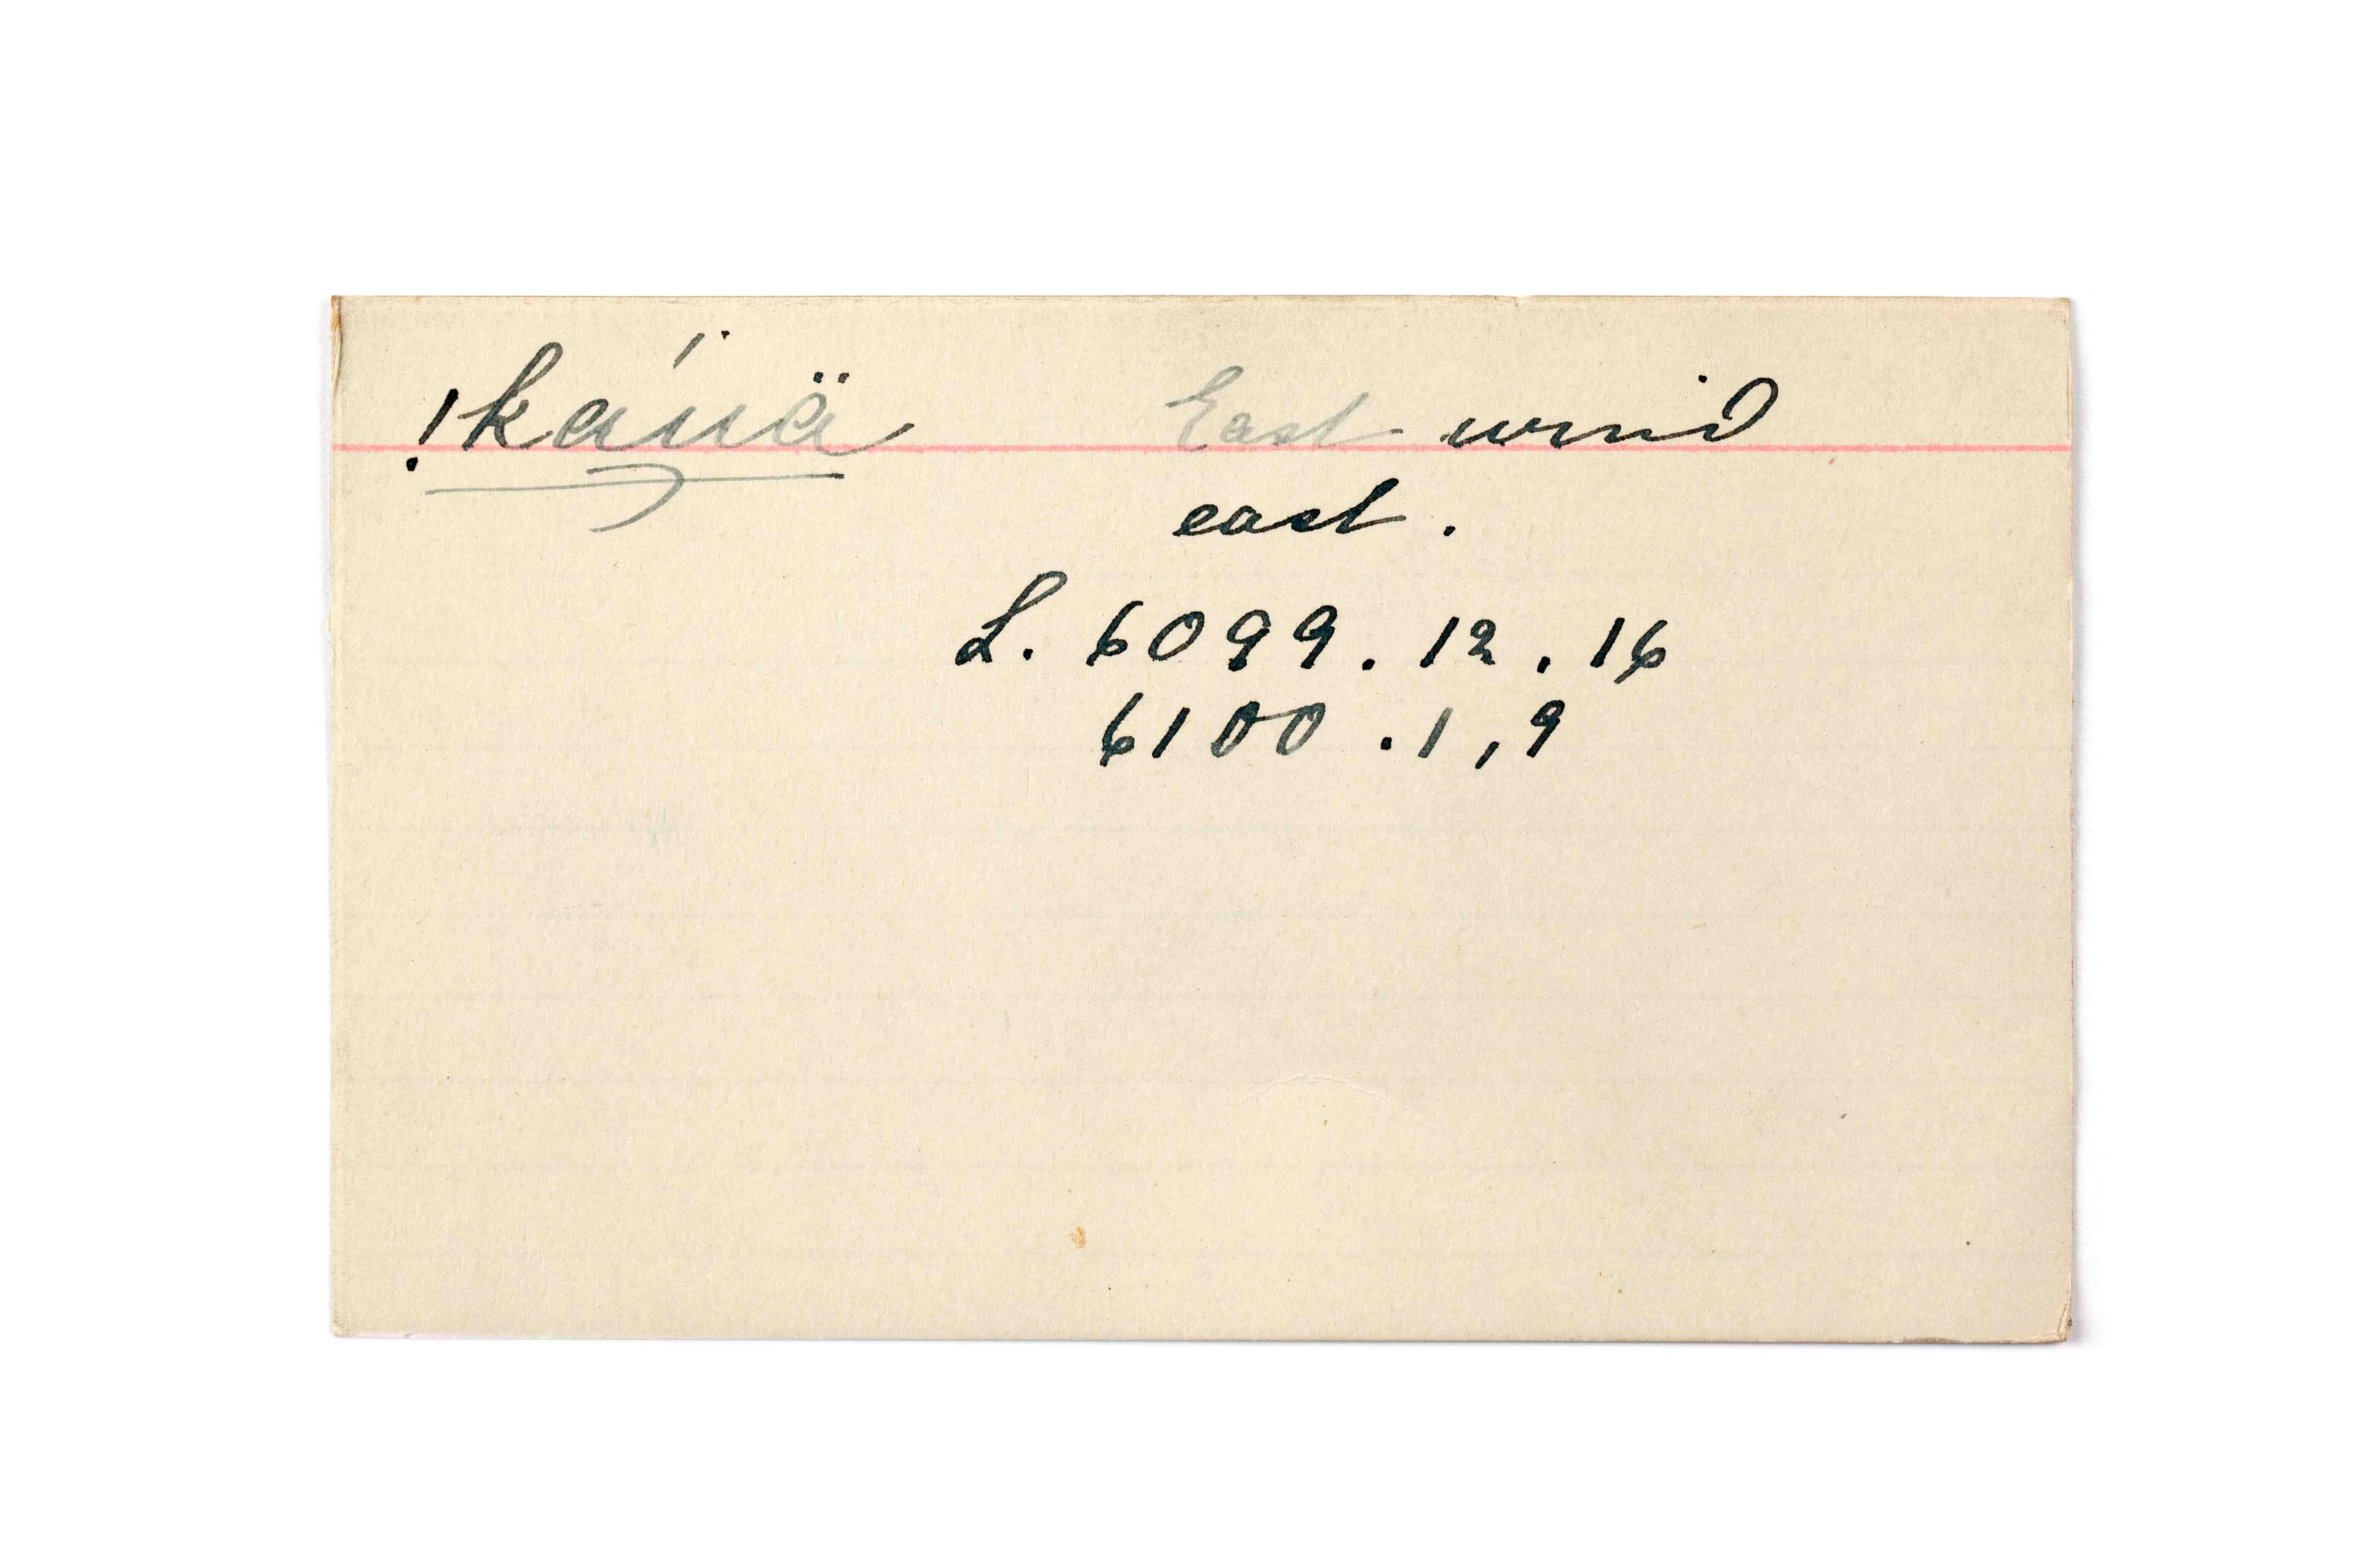 !káuä East wind
east.
L. 6099. 12. 16
6100. 1, 9